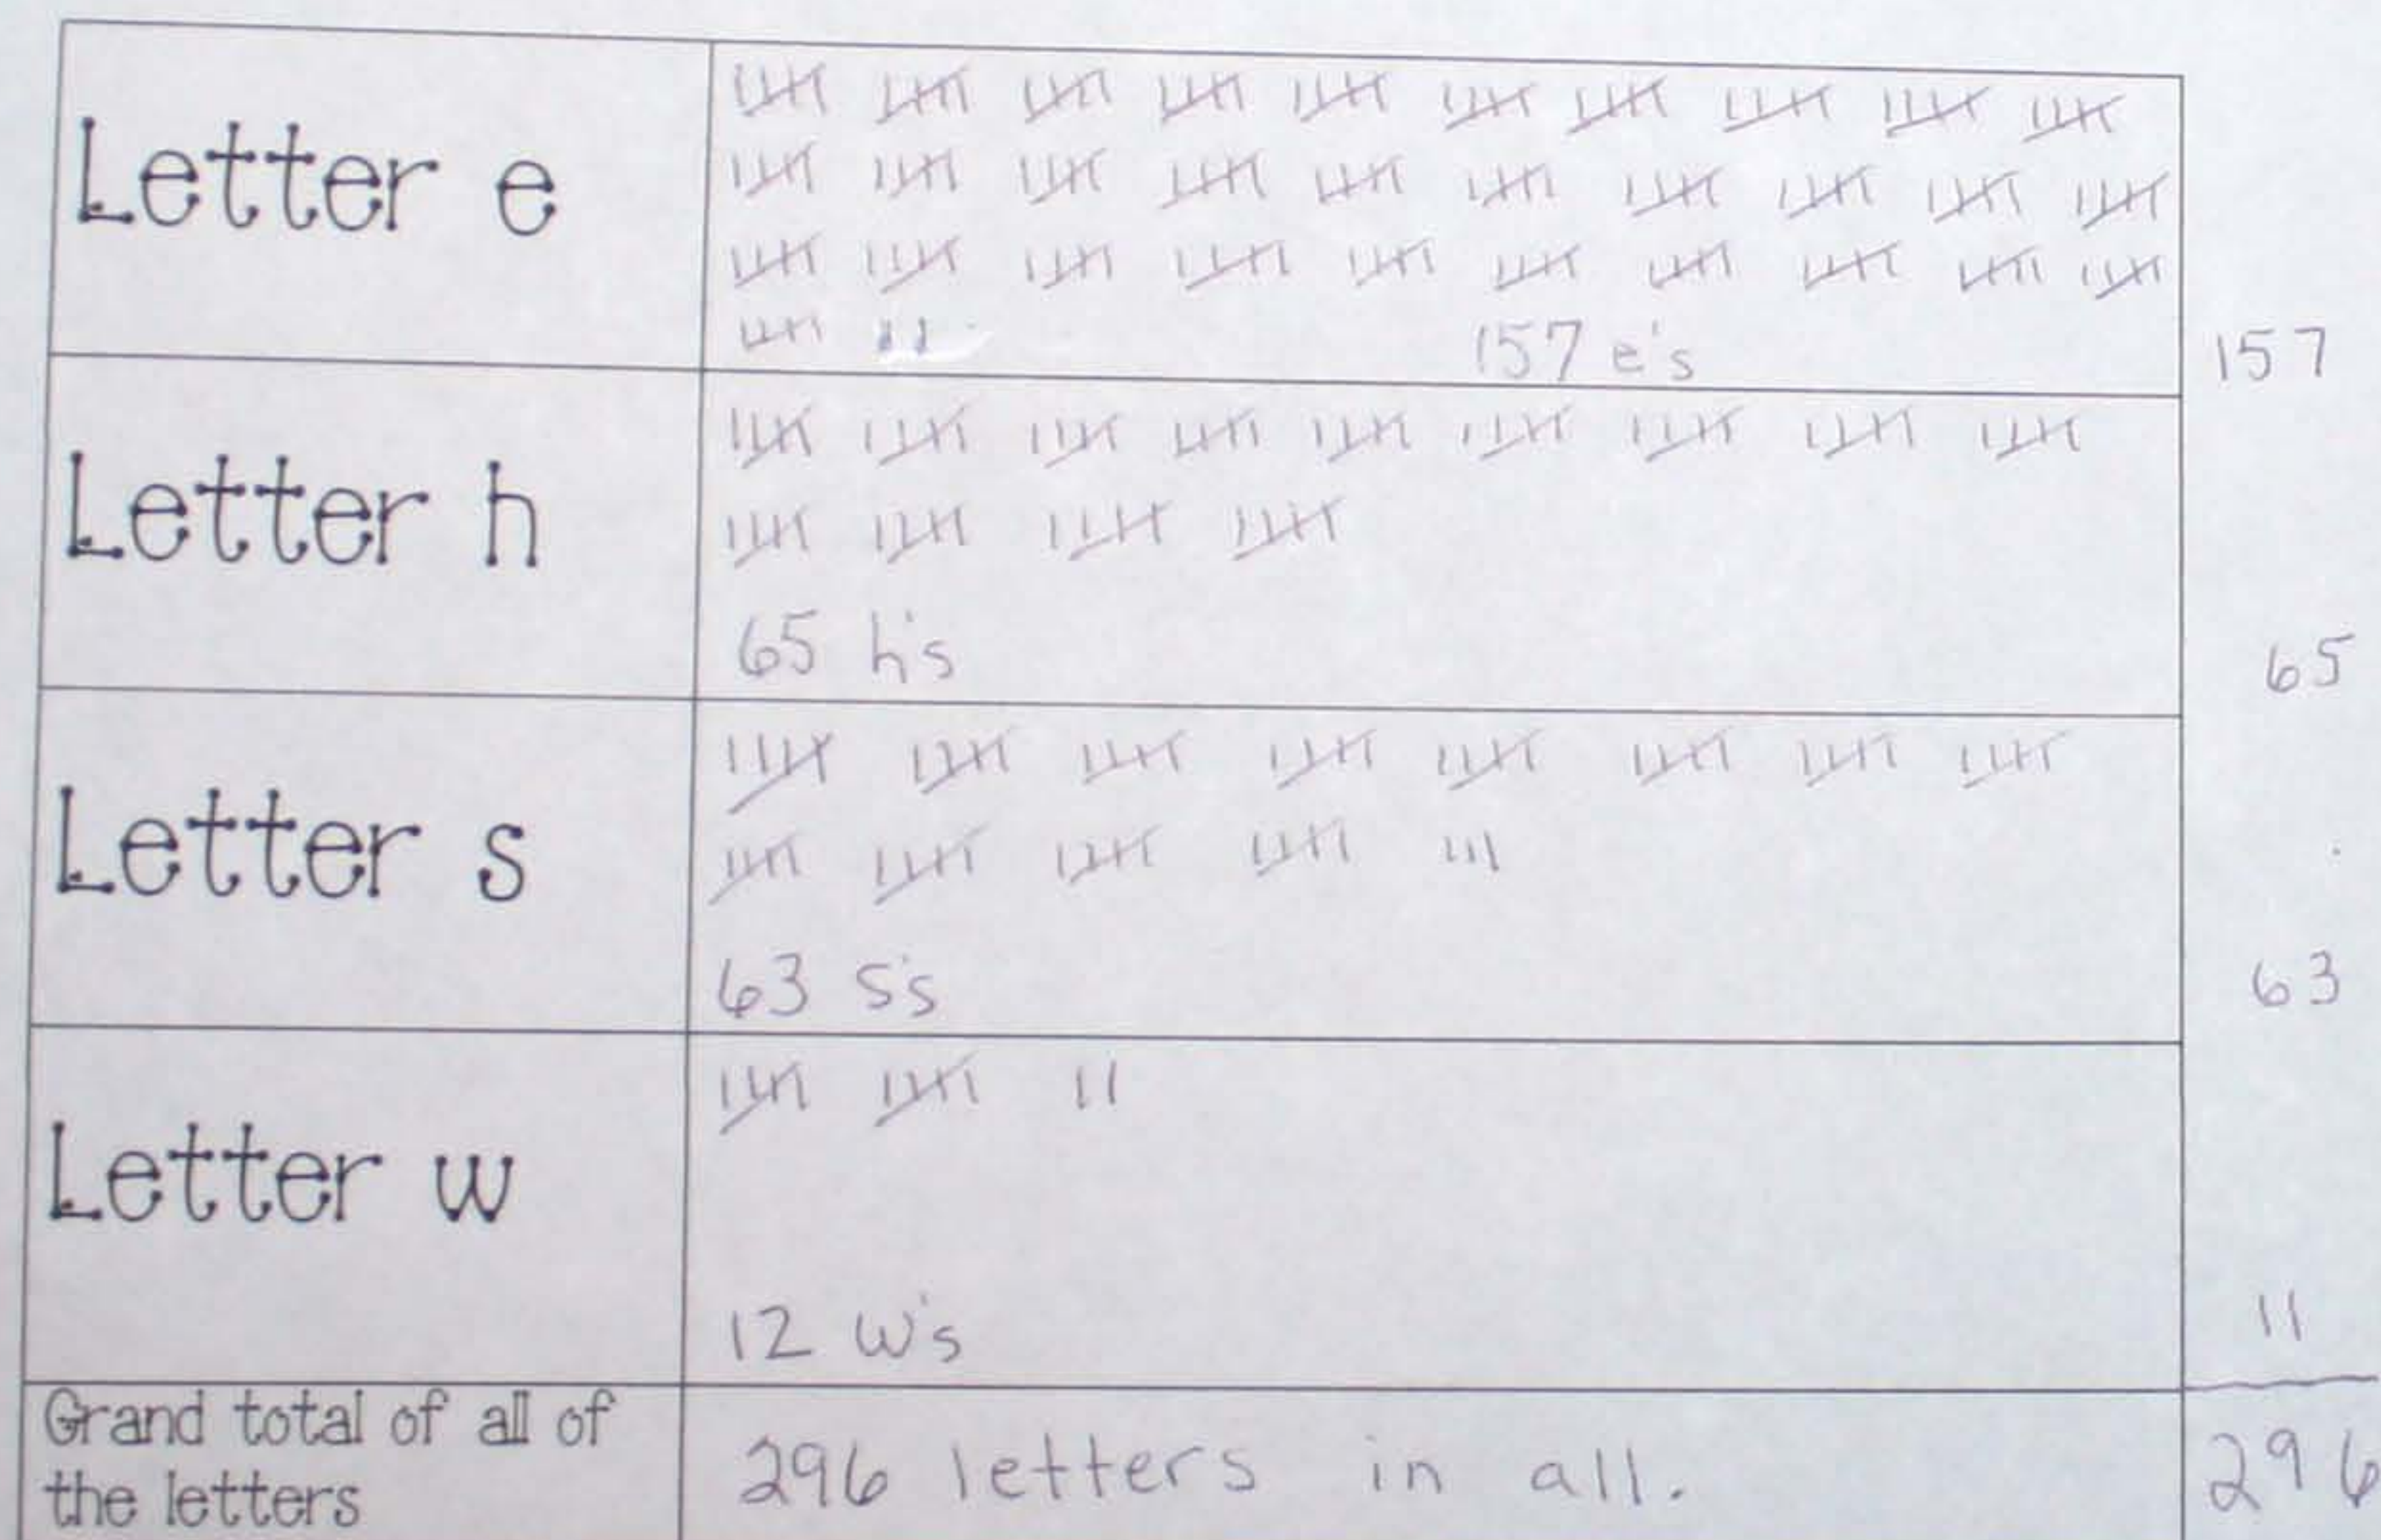 Letter e
157 e's
157
Letter h
65 h's
65
Letter s
63 s's
63
Letter w
12 w's
11
Grand total of all of
the letters
296 letters in all.
296